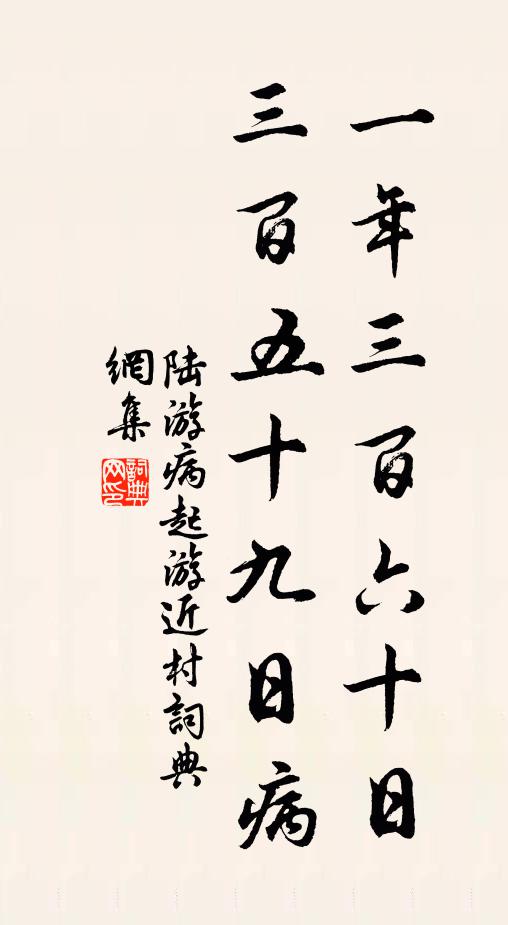 一年三百六十日
三百五十九日病
陆游病起游近村詞典
網集
詞典
网印